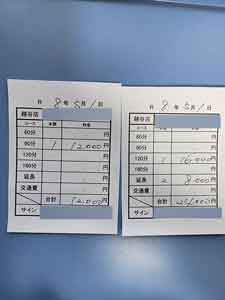 R 8年5月1日
越谷店
コース 本数 料金
60分 円
90分 1 12,000円
120分 円
180分 円
延長 円
交通費 円
合計 12,000円
サイン
R 8年5月1日
越谷店
コース 本数 料金
60分 円
90分 円
120分 1 16,000円
180分 円
延長 2 8,000円
交通費 円
合計 24,000円
サイン